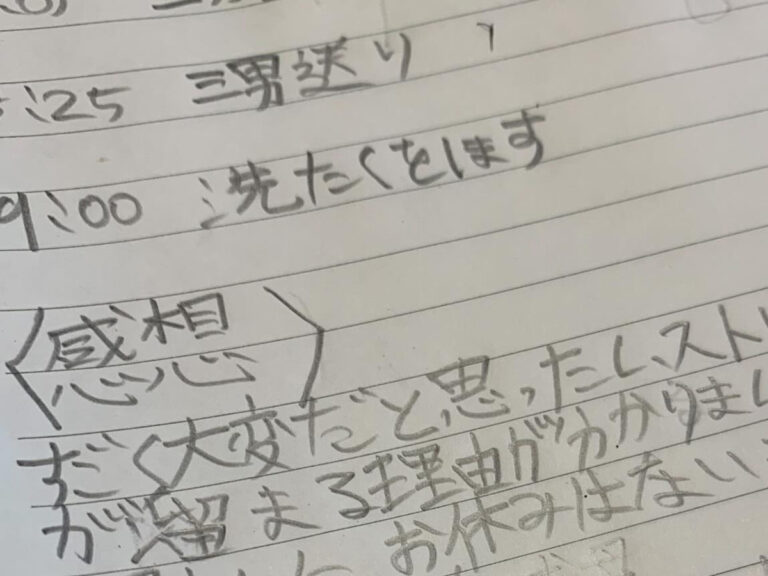 :25 三男送り
9:00 洗たくをします
〈感想〉
すごく大変だと思ったし、スト
が溜まる理由がわかりまし
お休みはない